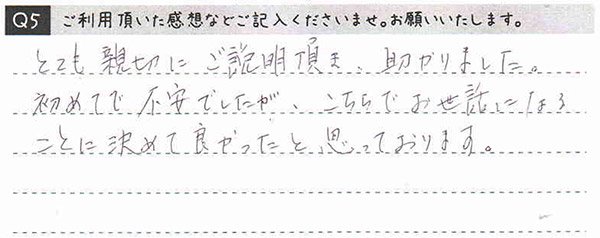 Q5 ご利用頂いた感想などご記入くださいませ。お願いいたします。
とても親切にご説明頂き、助かりました。
初めてで不安でしたが、こちらでお世話になる
ことに決めて良かったと思っております。